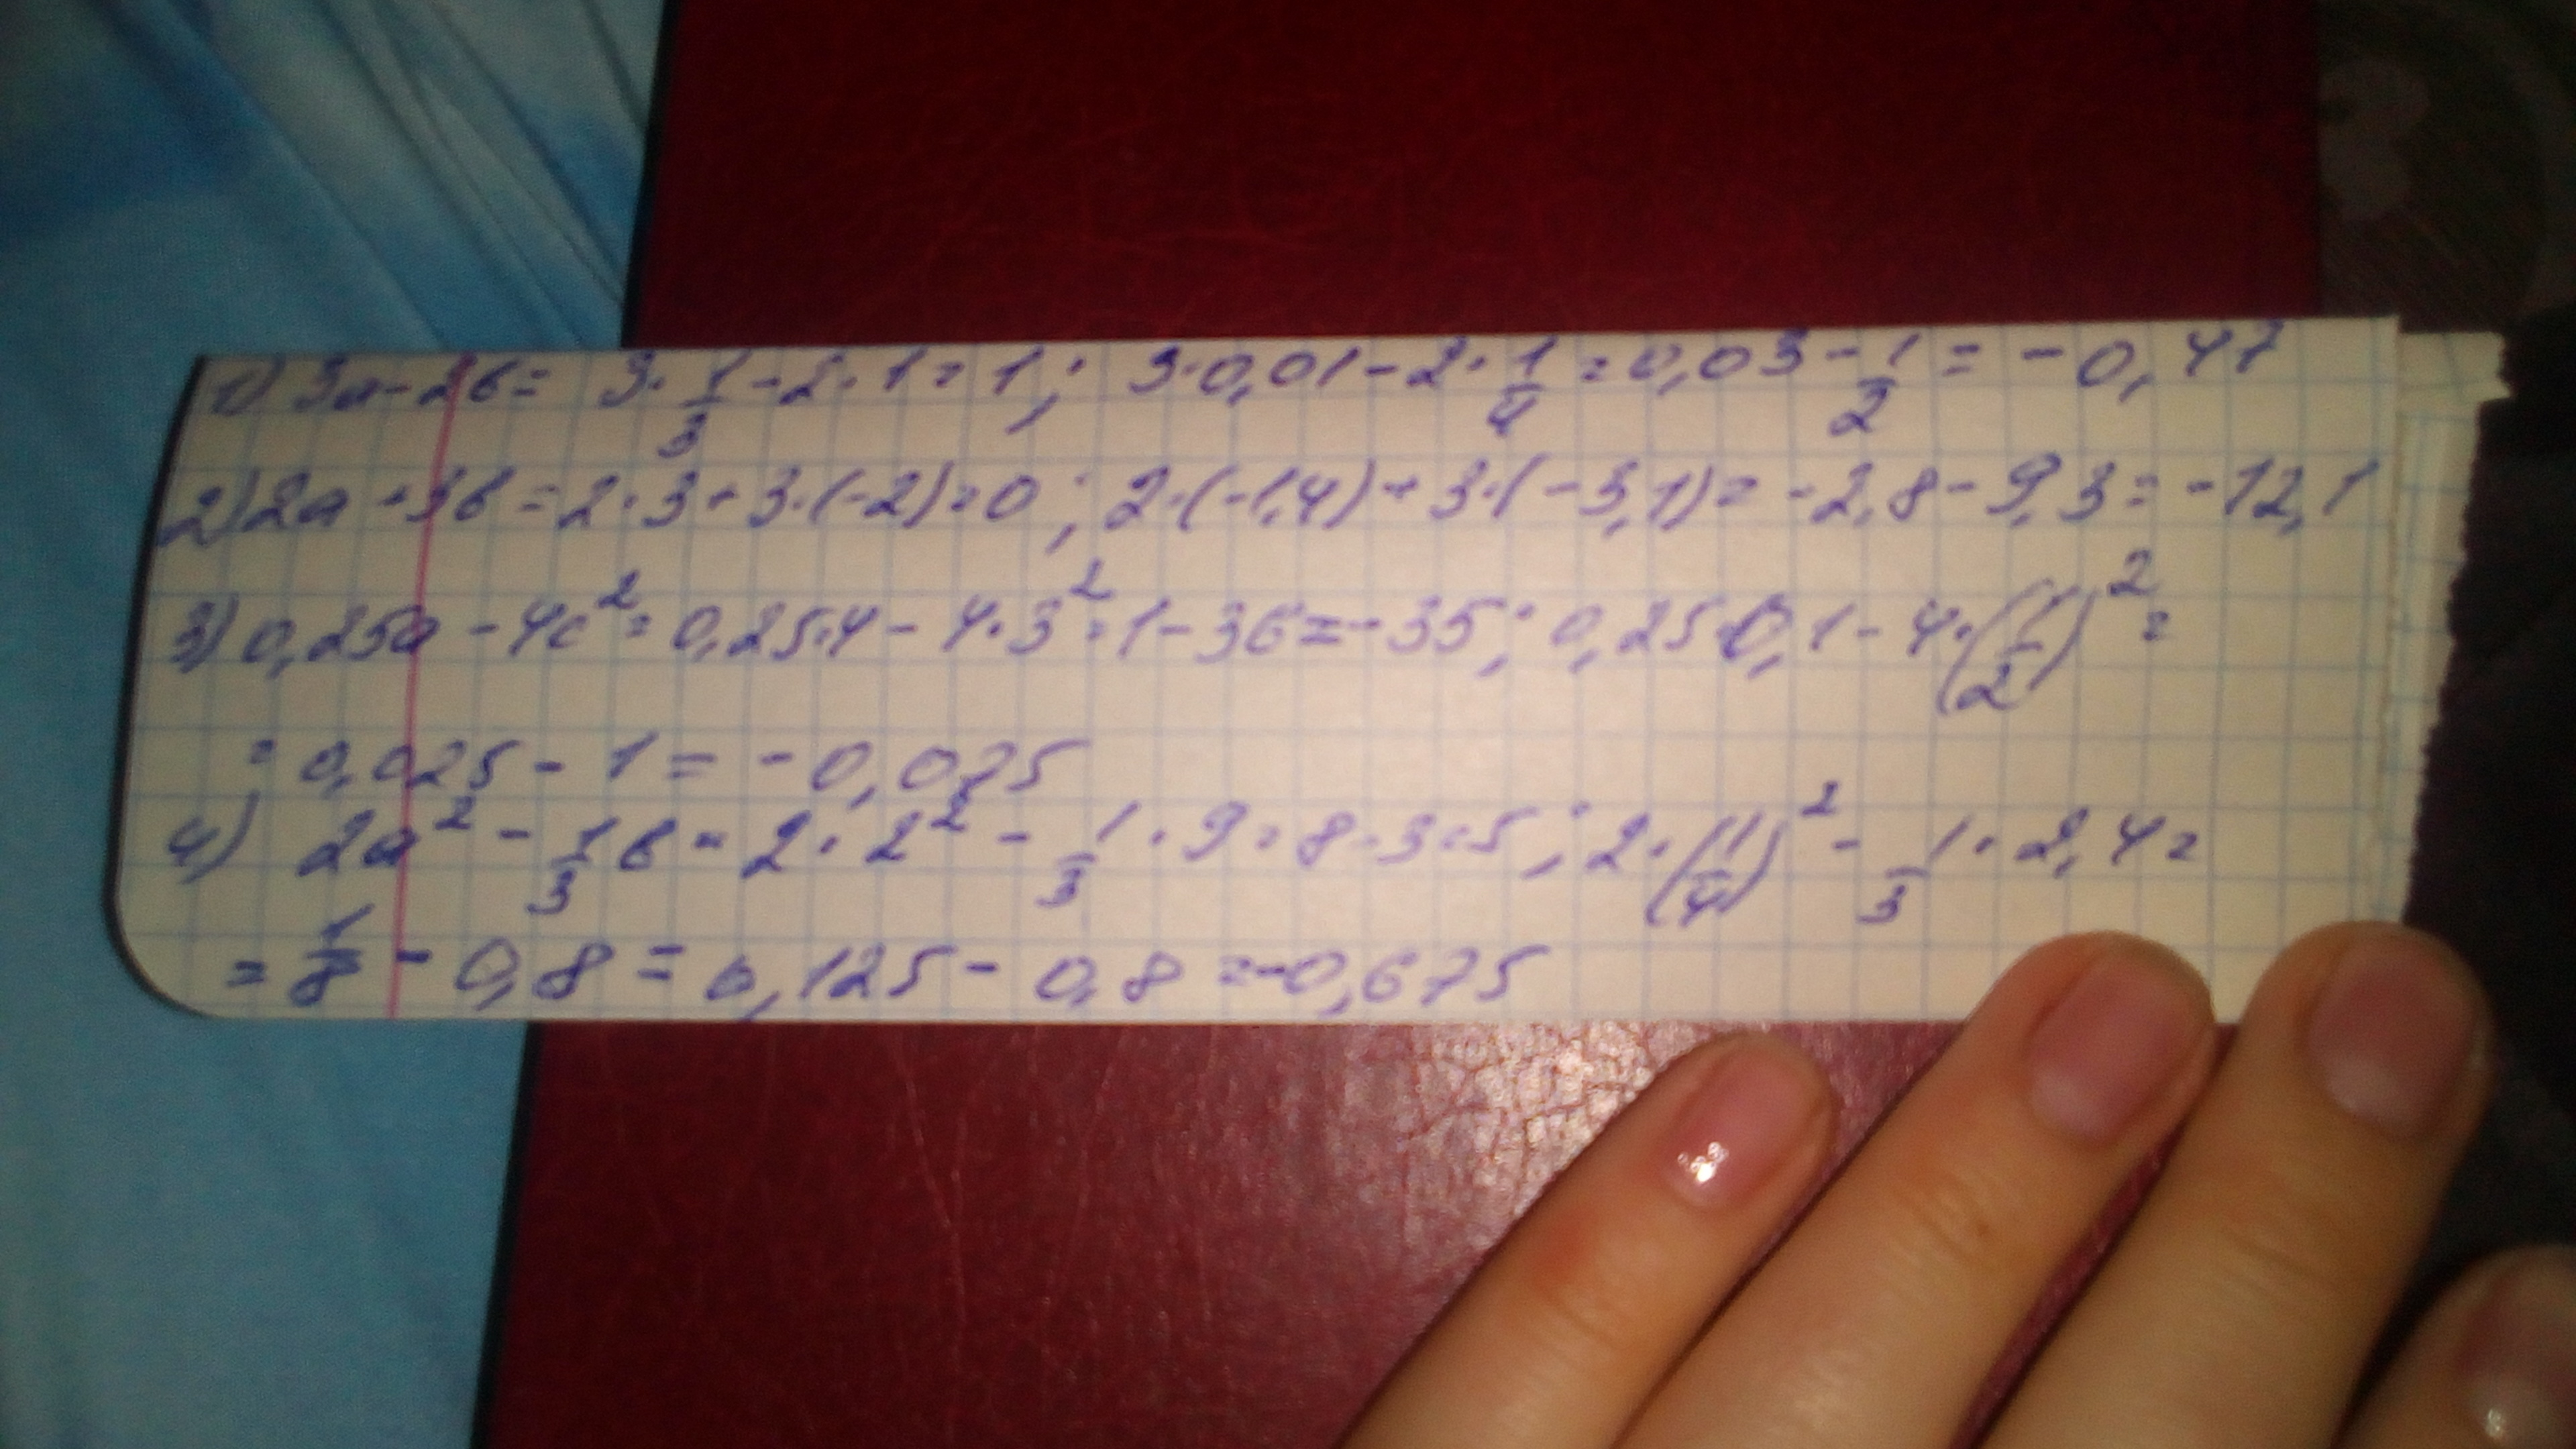 1) 3a-2в= 3·1/3-2·1=1; 3·0,01-2·1/4=0,03-1/2=-0,47
2) 2a+3в=2·3+3·(-2)=0; 2·(-1,4)+3·(-3,1)=-2,8-9,3=-12,1
3) 0,25a-4c²=0,25·4-4·3²=1-36=-35; 0,25·0,1-4·(1/2)²=
=0,025-1=-0,075
4) 2a²-1/3в=2·2²-1/3·9=8-3=5; 2·(1/4)²-1/3·2,4=
=1/8-0,8=0,125-0,8=-0,675